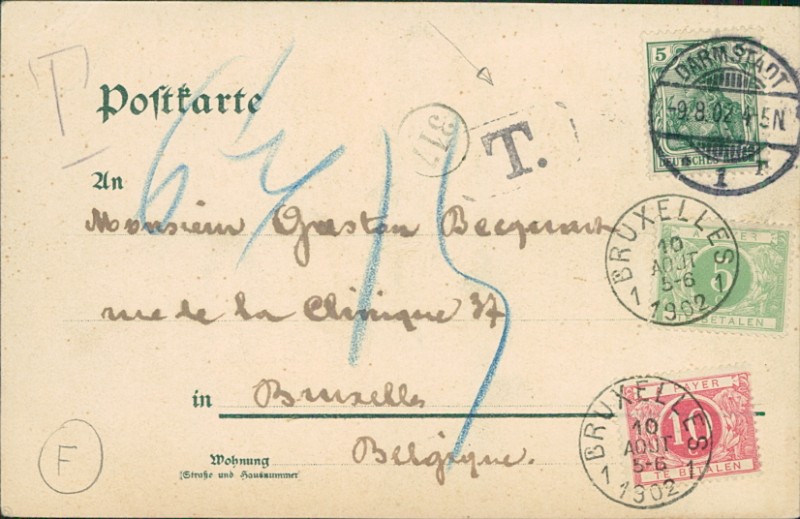 T
Postkarte
317
T.
5
DEUTSCHES
DARMSTADT
9.8.02 4-5N
1
An
Monsieur Gaston Becquart
BRUXELLES
10
AOUT
5-6
1 1902 1
5
BETALEN
rue de la Clinique 37
15
in Bruxelles
BRUXELLES
10
AOUT
5-6
1 1902 1
PAYER
10
TE BETALEN
Belgique.
Wohnung
(Straße und Hausnummer
F